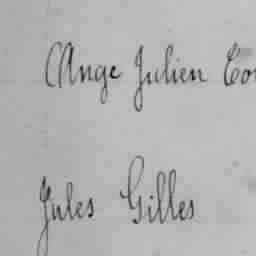 Ange Julien
Jules Gilles